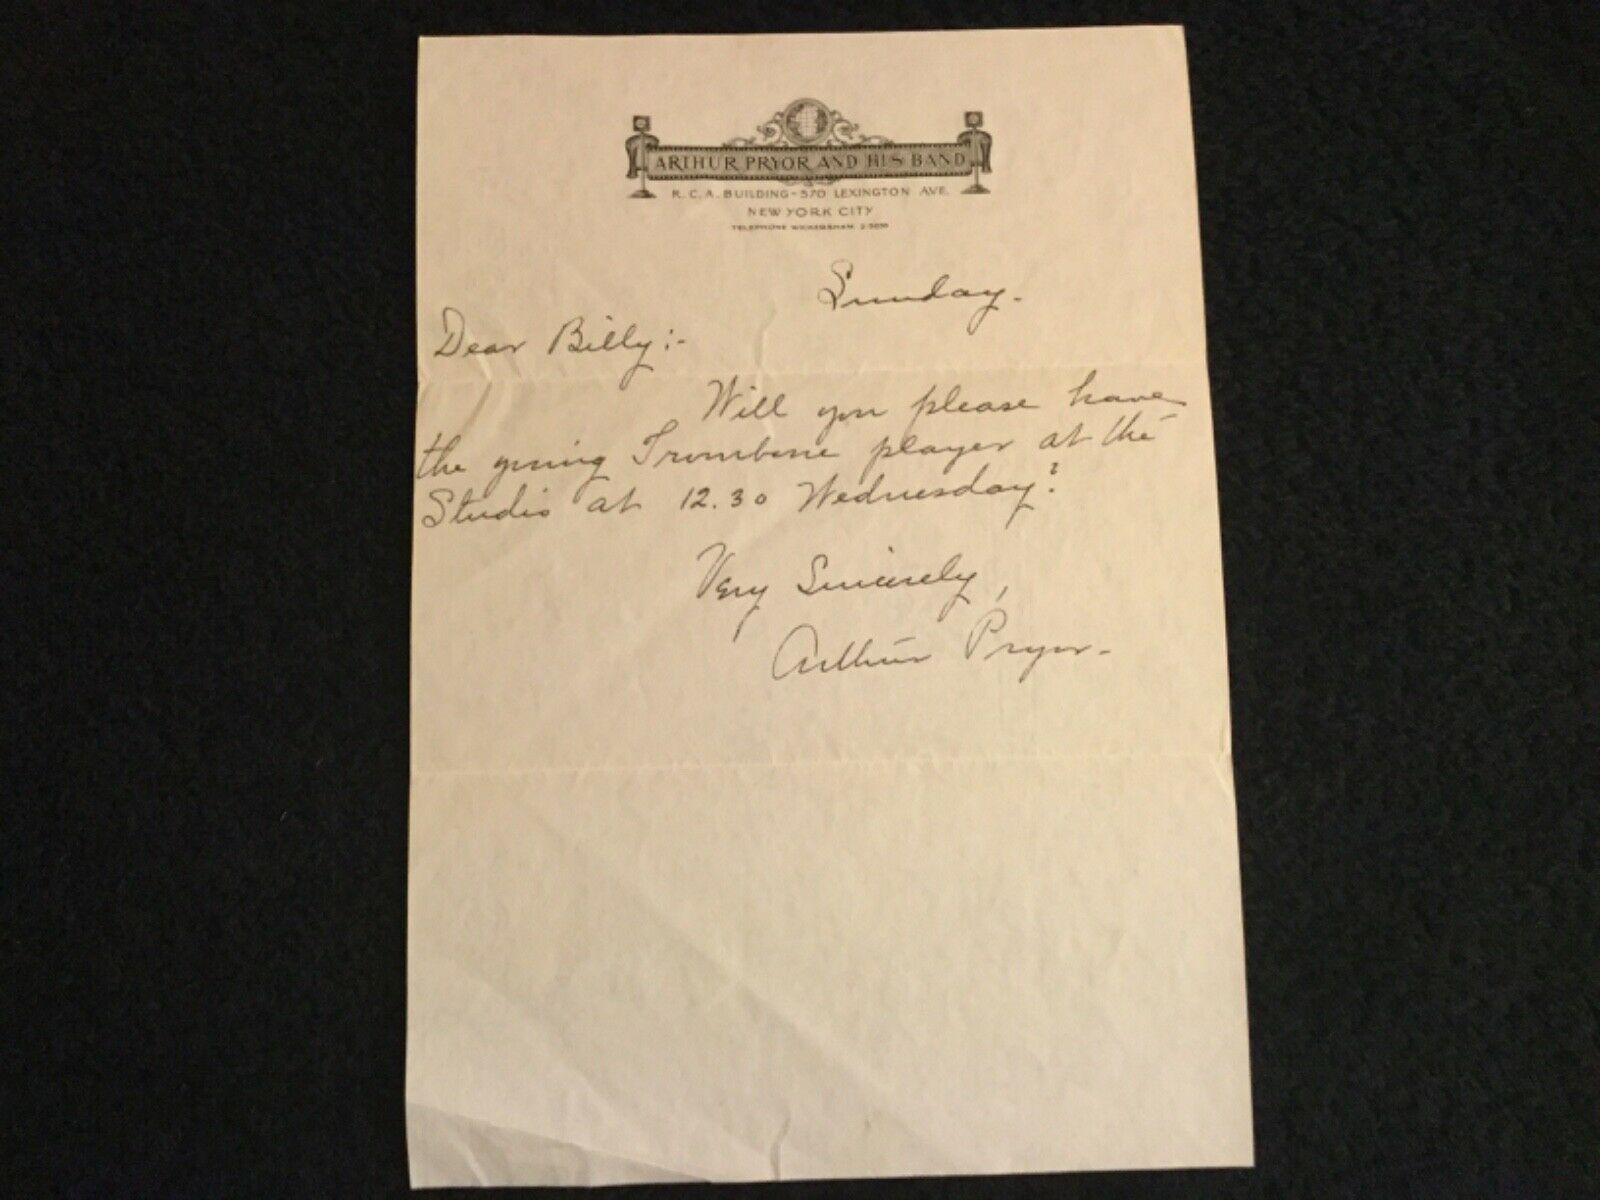 ARTHUR PRYOR AND HIS BAND
R.C.A. BUILDING - 570 LEXINGTON AVE.
NEW YORK CITY
TELEPHONE WICKERSHAM 2
Sunday.
Dear Billy:-
Will you please have
the young Trombone player at the
Studio at 12.30 Wednesday?
Very Sincerely,
Arthur Pryor-